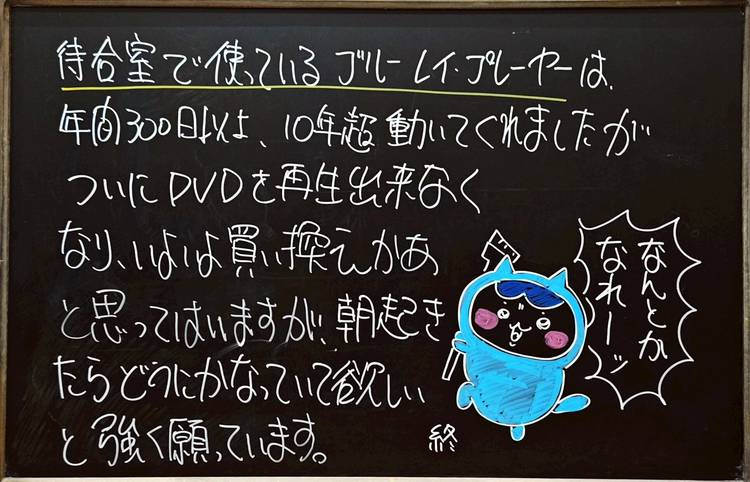 待合室で使っているブルーレイ・プレーヤーは、
年間300日以上、10年超動いてくれましたが
ついにDVDを再生出来なく
なり、いよいよ買い換えかぁ
と思ってはいますが、朝起き
たらどうにかなっていて欲しい
と強く願っています。
終
なんとか
なれーッ